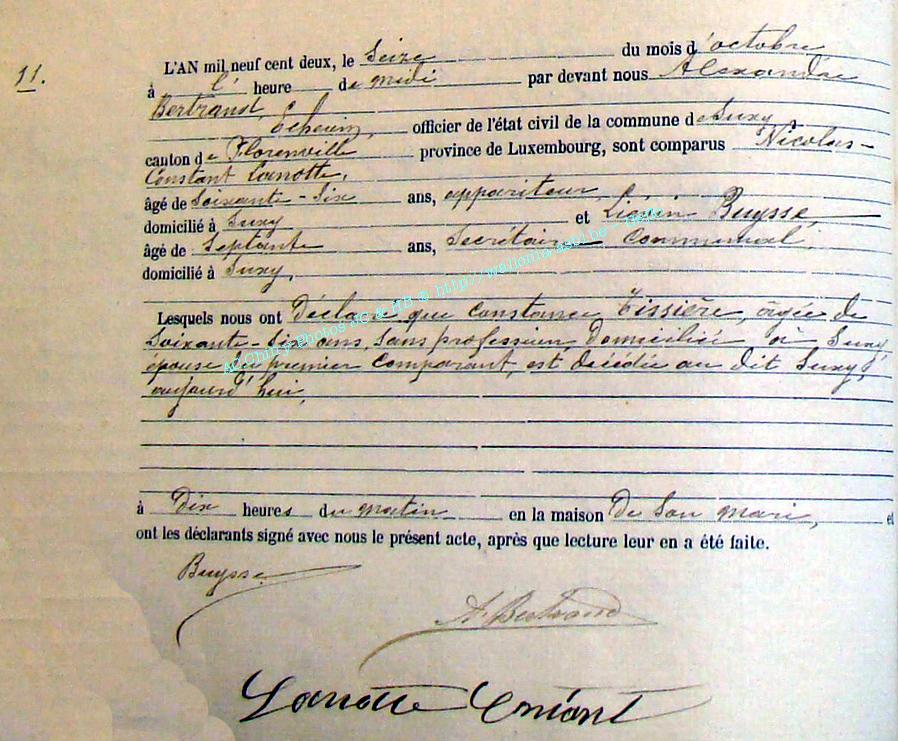 11.
L'AN mil neuf cent deux, le Seize du mois d'octobre
à l' heure de midi par devant nous Alexandre
Bertrand,
Echevin, officier de l'état civil de la commune de Suxy
canton de Florenville province de Luxembourg, sont comparus Nicolas-
Constant Lanotte,
âgé de Soixante-Six ans, appariteur
domicilié à Suxy et Liévin Buysse,
âgé de Septante ans, Secrétaire Communal,
domicilié à Suxy,
Lesquels nous ont Déclaré que Constance Tissière, âgée de
Soixante-Six ans, Sans profession, Domiciliée à Suxy
épouse du premier Comparant, est décédée au dit Suxy,
aujourd'hui,
à Dix heures du matin en la maison De Son mari, et
ont les déclarants signé avec nous le présent acte, après que lecture leur en a été faite.
Buysse
A. Bertrand
Lanotte Constant